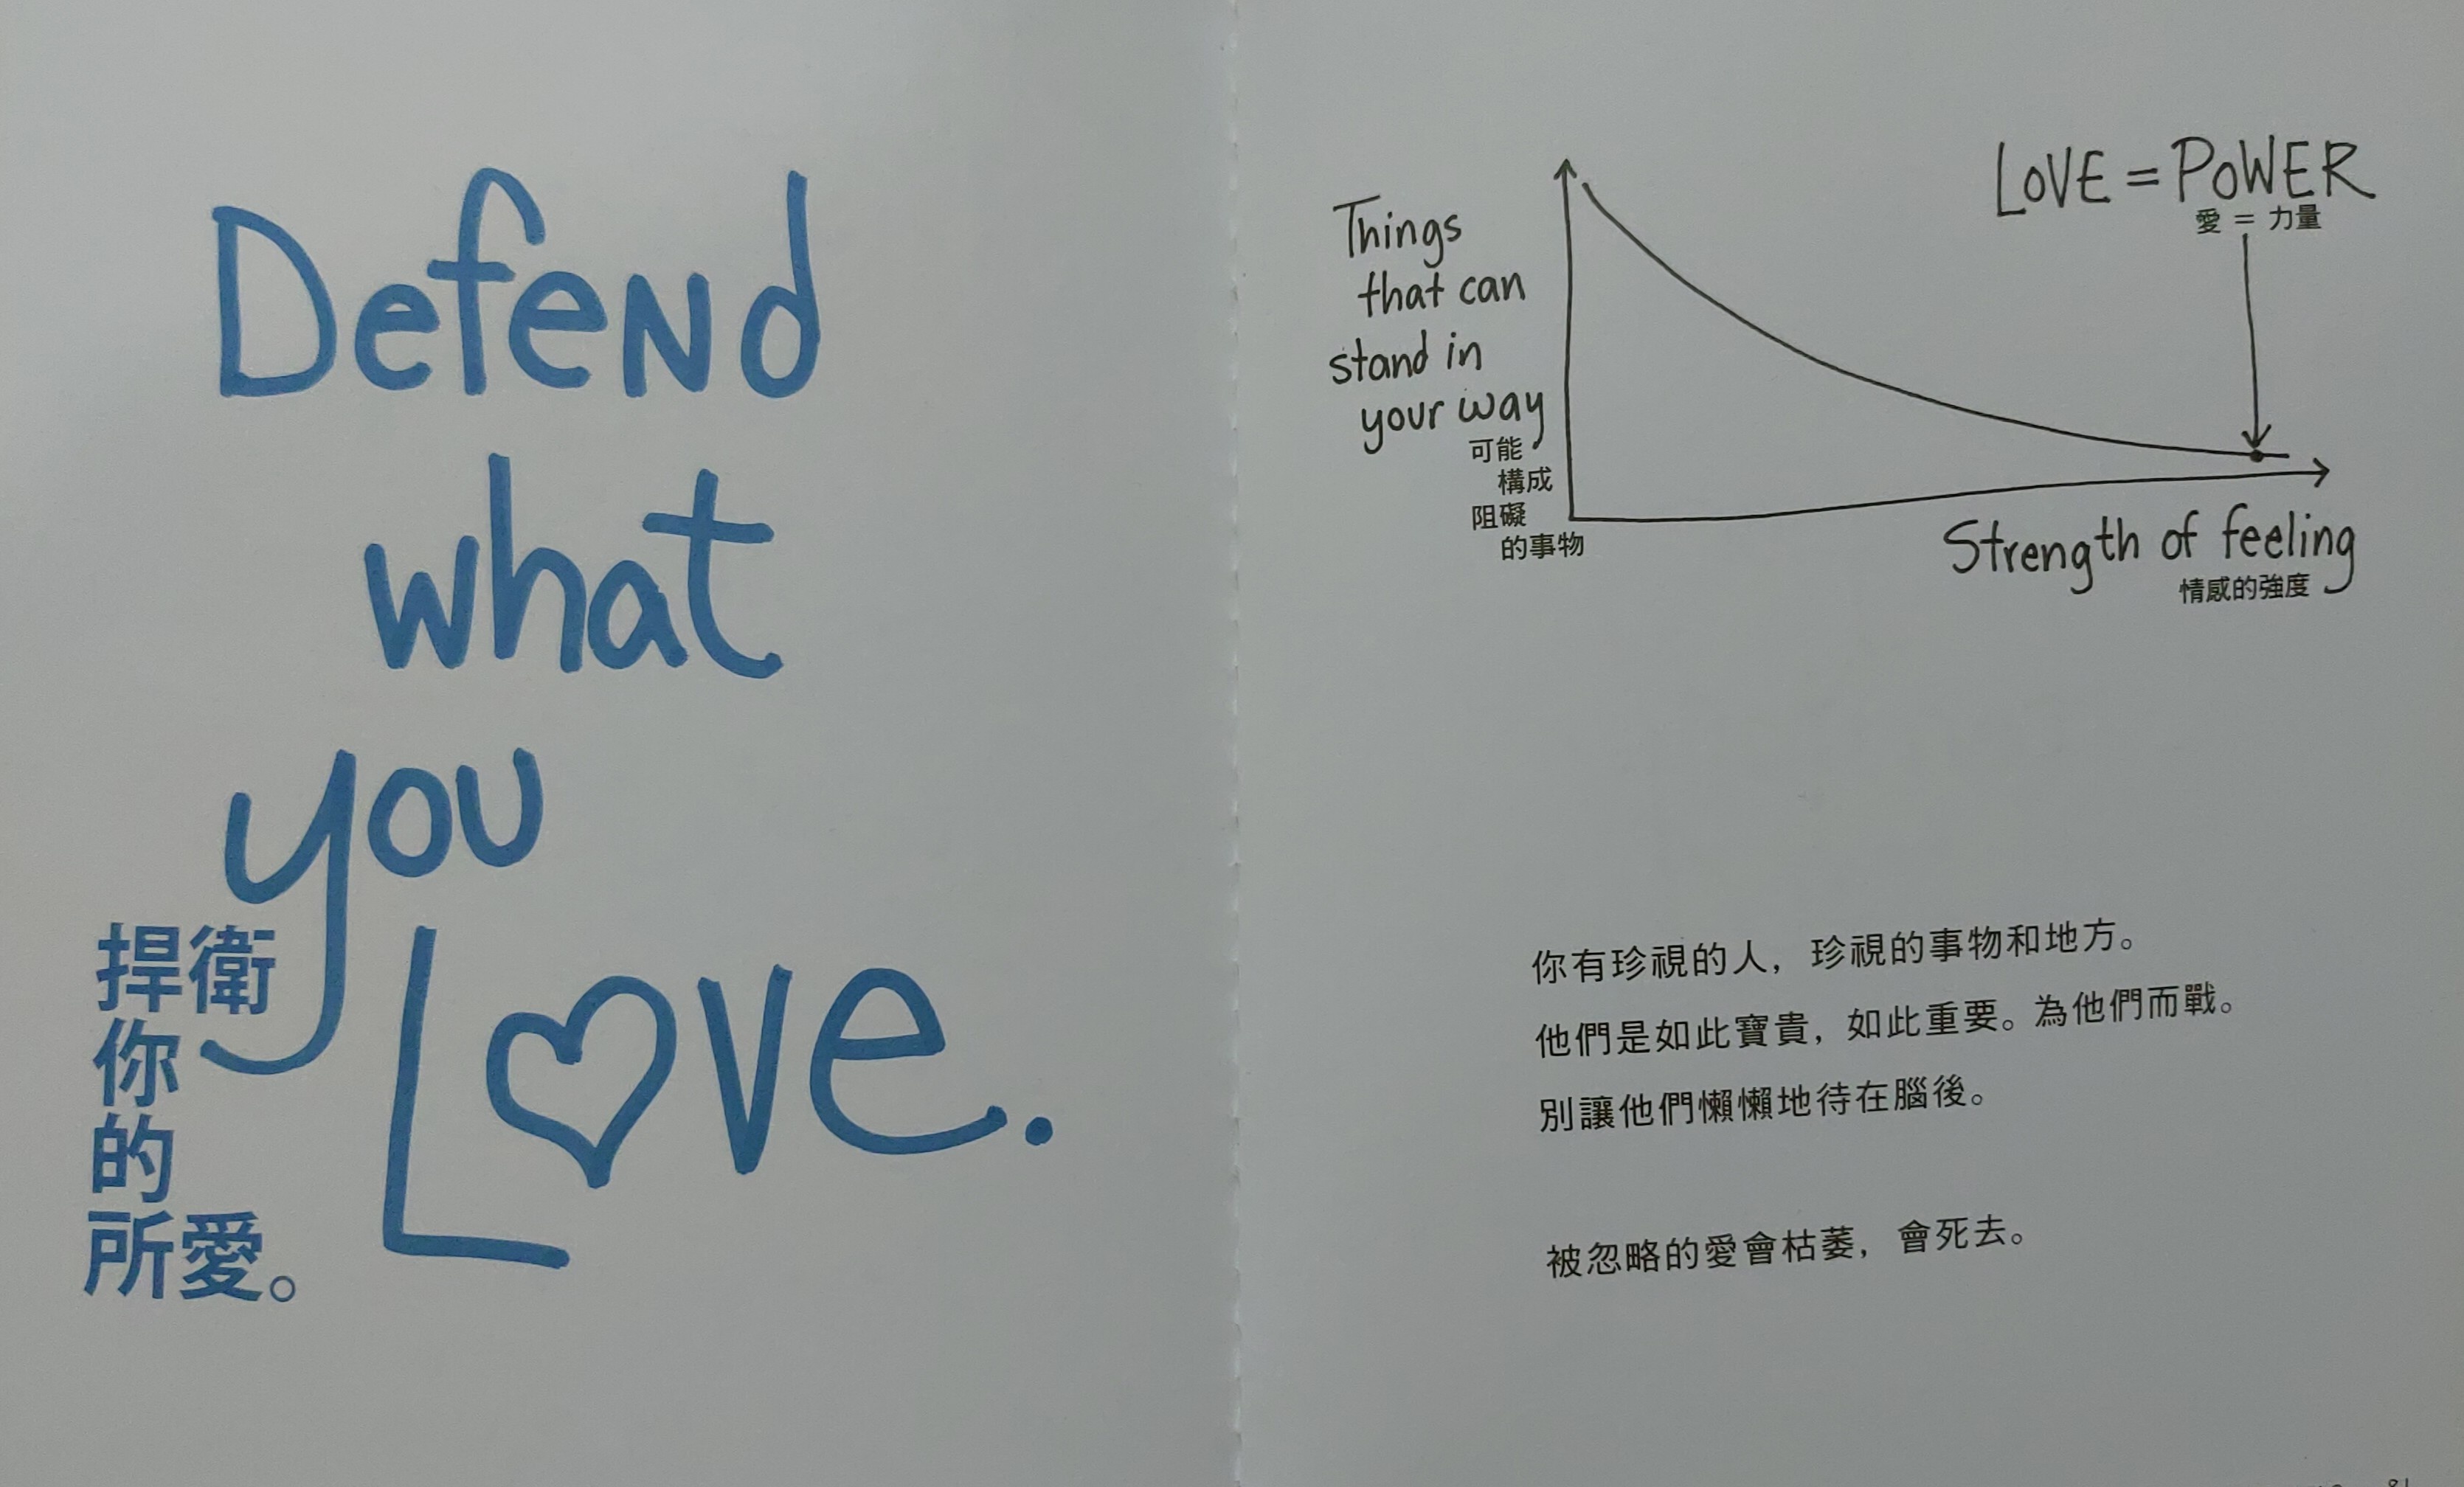 Defend
what
you
Love.
捍衛
你
的
所愛。
LOVE = POWER
愛 = 力量
Things
that can
stand in
your way
可能
構成
阻礙
的事物
Strength of feeling
情感的強度
你有珍視的人，珍視的事物和地方。
他們是如此寶貴，如此重要。為他們而戰。
別讓他們懶懶地待在腦後。
被忽略的愛會枯萎，會死去。